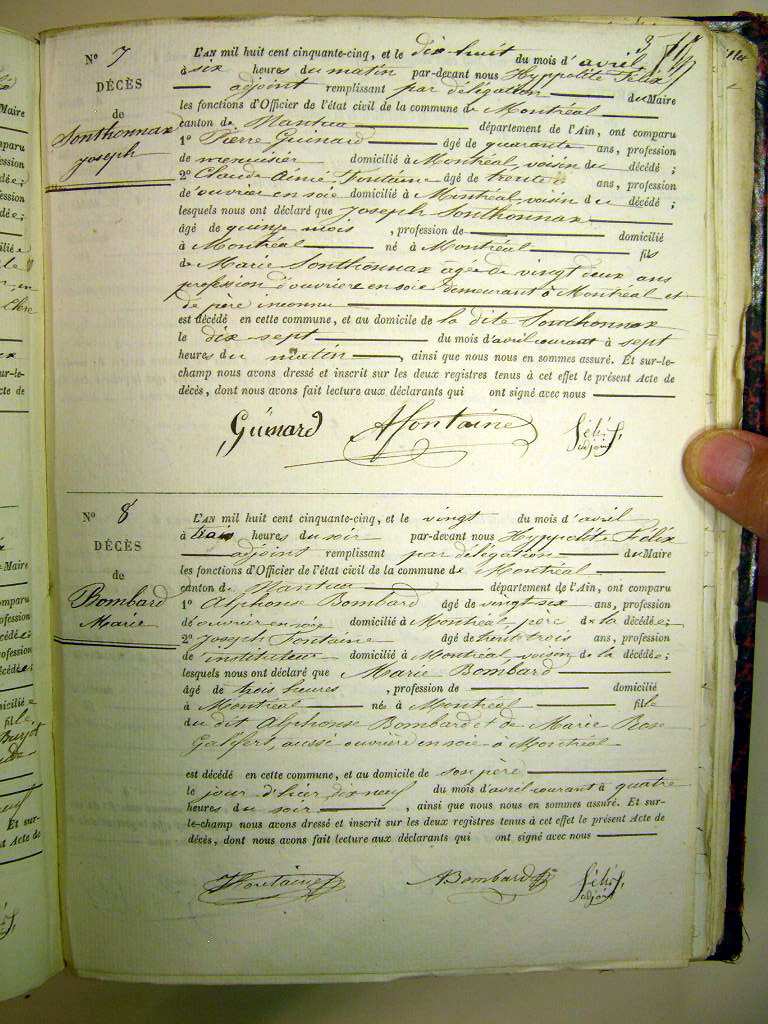 N° 7
DÉCÈS
de
Sonthonnax
Joseph
L'AN mil huit cent cinquante-cinq, et le dix-huit du mois d'avril
à six heures du matin par-devant nous Hyppolite Félix
adjoint remplissant par délégation du Maire
les fonctions d'Officier de l'état civil de la commune de Montréal
canton de Nantua département de l'Ain, ont comparu
1° Pierre Guinard âgé de quarante ans, profession
de menuisier domicilié à Montréal voisin du décédé;
2° Claude Aimé Fontaine âgé de trente ans, profession
de ouvrier en soie domicilié à Montréal voisin du décédé;
lesquels nous ont déclaré que Joseph Sonthonnax
âgé de quinze mois, profession de domicilié
à Montréal né à Montréal fils
de Marie Sonthonnax âgée de vingt deux ans
profession d'ouvrière en soie demeurant à Montréal et
de père inconnu
est décédé en cette commune, et au domicile de la dite Sonthonnax
le dix sept du mois d'avril courant à sept
heures du matin, ainsi que nous nous en sommes assuré. Et sur-le-
champ nous avons dressé et inscrit sur les deux registres tenus à cet effet le présent Acte de
décès, dont nous avons fait lecture aux déclarants qui ont signé avec nous
Guinard AFontaine Félix
adjoint
N° 8
DÉCÈS
de
Bombard
Marie
L'AN mil huit cent cinquante-cinq, et le vingt du mois d'avril
à trois heures du soir par-devant nous Hyppolite Félix
adjoint remplissant par délégation du Maire
les fonctions d'Officier de l'état civil de la commune de Montréal
canton de Nantua département de l'Ain, ont comparu
1° Alphonse Bombard âgé de vingt-six ans, profession
de ouvrier en soie domicilié à Montréal père de la décédée;
2° Joseph Fontaine âgé de trois ans, profession
de instituteur domicilié à Montréal voisin de la décédée;
lesquels nous ont déclaré que Marie Bombard
âgé de trois heures, profession de domicilié
à Montréal née à Montréal fille
du dit Alphonse Bombard et de Marie Rose
aussi ouvrière en soie à Montréal
est décédé en cette commune, et au domicile de son père
le jour d'hier dix neuf du mois d'avril courant à quatre
heures du soir, ainsi que nous nous en sommes assuré. Et sur-
le-champ nous avons dressé et inscrit sur les deux registres tenus à cet effet le présent Acte de
décès, dont nous avons fait lecture aux déclarants qui ont signé avec nous
Fontaine ABombard Félix
adjoint